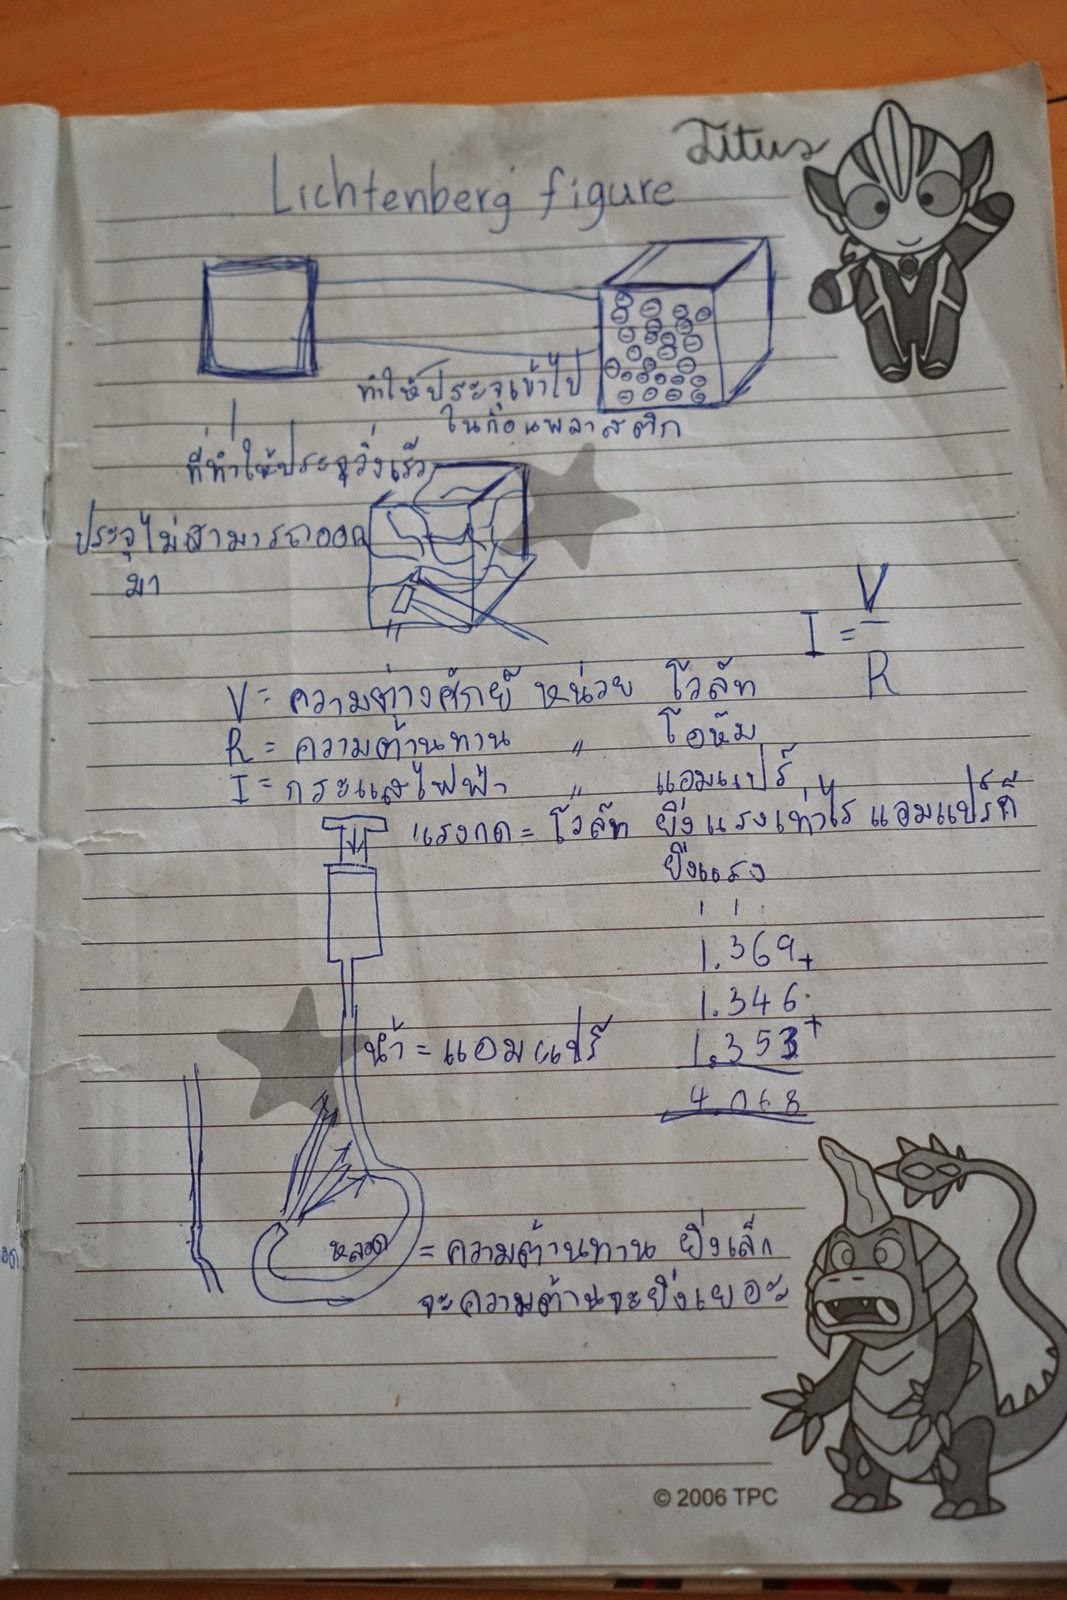 Titus
Lichtenberg figure
ทำให้ประจุเข้าไป
ในก้อนพลาสติก
ที่ทำให้ประจุวิ่งเร็ว
ประจุไม่สามารถออก
มา
I = V
R
V = ความต่างศักย์ หน่วย โวลัท
R = ความต้านทาน " โอห์ม
I = กระแสไฟฟ้า " แอมแปร์
แรงกด = โวลัท ยิ่งแรงเท่าไร แอมแปร์ก็
ยิ่งแรง
1.369+
1.346
1.353+
4.068
น้ำ = แอมแปร์
หลอด = ความต้านทาน ยิ่งเล็ก
จะความต้านจะยิ่งเยอะ
© 2006 TPC